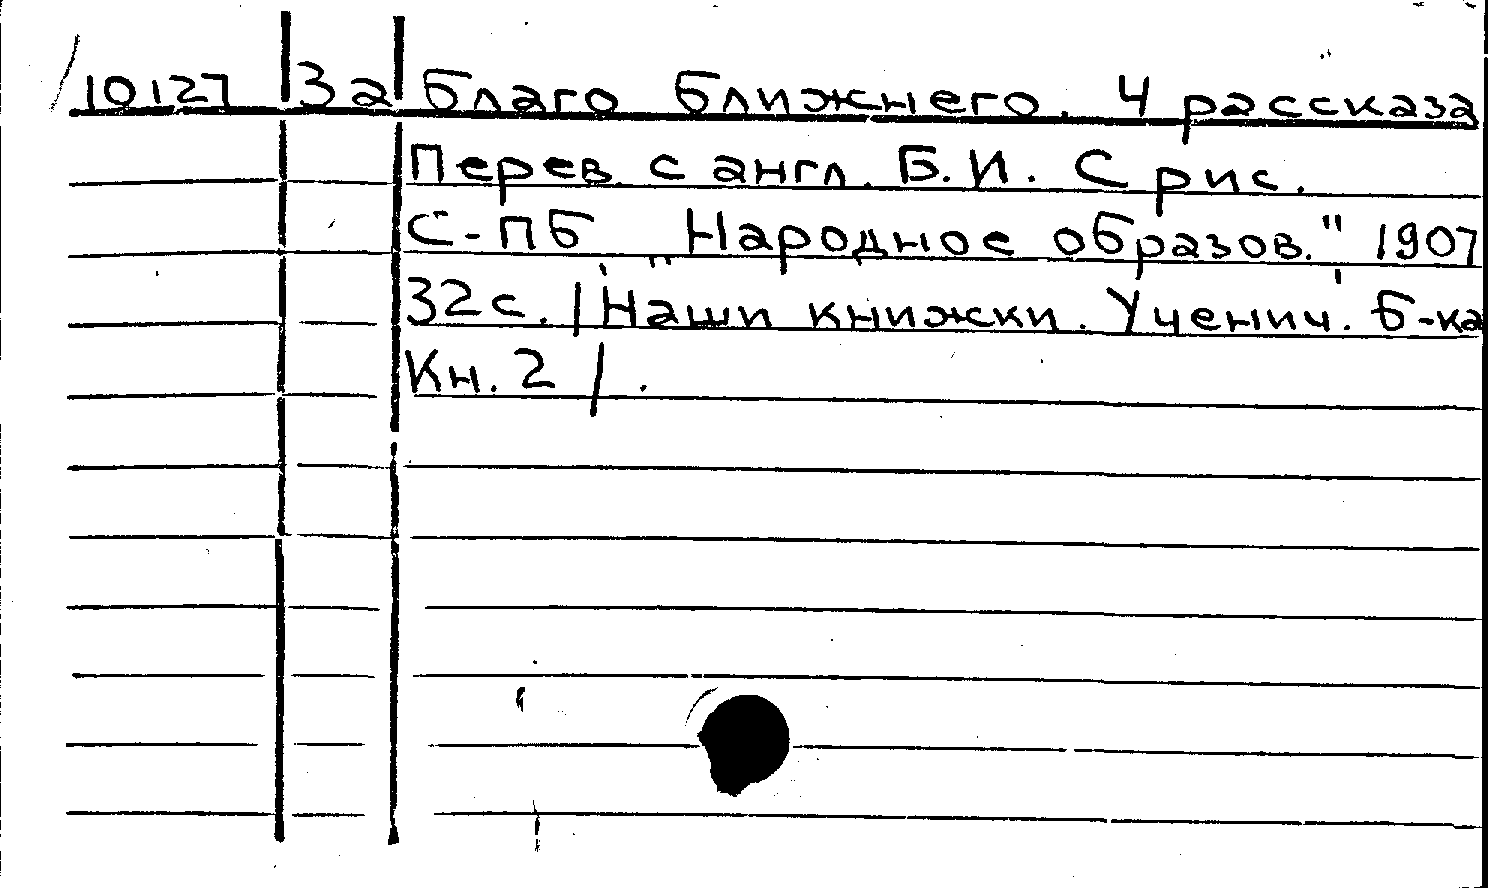 10127 За Благо ближнего. 4 рассказа
Перев. с англ. Б.И. С рис.
С-ПБ "Народное образов." 1907
32с. /Наши книжки. Ученич. б-ка
Кн. 2/.